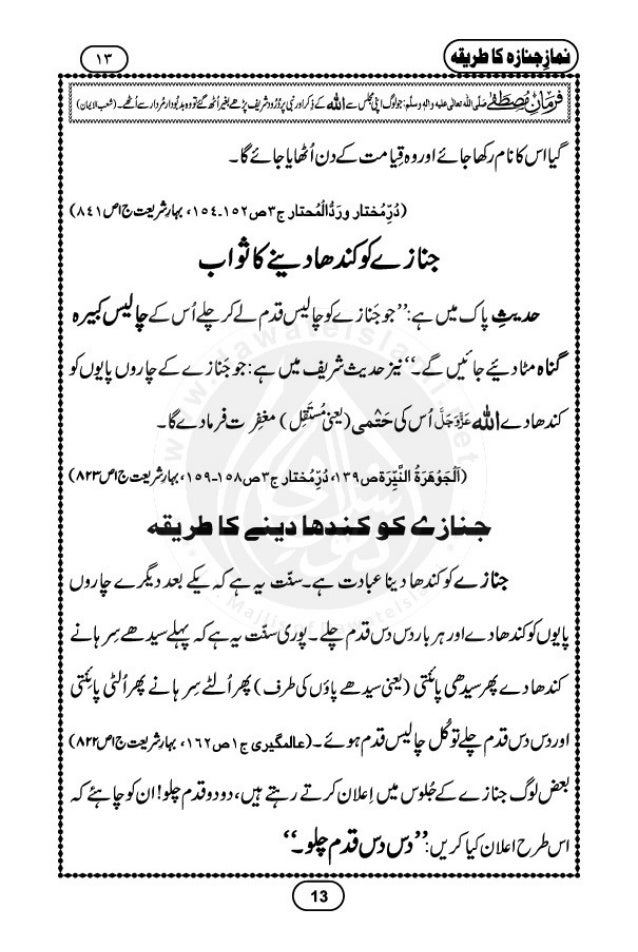 نمازِ جنازہ کا طریقہ
١٣
فرمانِ مصطفےٰ صلی اللہ تعالیٰ علیہ والہ وسلم: جو لوگ اپنی مجلس سے اللہ کے ذکر اور نبی پر دُرُود شریف پڑھے بغیر اُٹھ گئے تو وہ بدبودار مُردار سے اُٹھے۔ (شعب الایمان)
گیا اس کا نام رکھا جائے اور وہ قِیامت کے دن اُٹھایا جائے گا۔
(دُرِّمُختار وردُّالْمُحتار ج٣ص١٥٢۔١٥٤، بہارِ شریعت ج١ص٨٤١)
جنازے کو کندھا دینے کا ثواب
حدیثِ پاک میں ہے: ’’جو جَنازے کو چالیس قدم لے کر چلے اُس کے چالیس کبیرہ
گناہ مٹا دیئے جائیں گے۔‘‘ نیز حدیث شریف میں ہے: جو جَنازے کے چاروں پایوں کو
کندھا دے اللہ عَزَّوَجَلَّ اُس کی حَتْمی (یعنی مُسْتَقِل) مغفِرت فرما دے گا۔
(اَلْجَوْهَرَةُ النَّیِّرَة ص١٣٩، دُرِّمُختار ج٣ص١٥٨۔١٥٩، بہارِ شریعت ج١ص٨٢٣)
جنازے کو کندھا دینے کا طریقہ
جنازے کو کندھا دینا عبادت ہے۔ سنّت یہ ہے کہ یکے بعد دیگرے چاروں
پایوں کو کندھا دے اور ہر بار دس دس قدم چلے۔ پوری سنّت یہ ہے کہ پہلے سیدھے سِرہانے
کندھا دے پھر سیدھی پائنتی (یعنی سیدھے پاؤں کی طرف) پھر اُلٹے سِرہانے پھر اُلٹی پائنتی
اور دس دس قدم چلے تو کُل چالیس قدم ہوئے۔ (عالمگیری ج١ص١٦٢، بہارِ شریعت ج١ص٨٢٢)
بعض لوگ جنازے کے جُلوس میں اِعلان کرتے رہتے ہیں، دو دو قدم چلو! ان کو چاہئے کہ
اس طرح اعلان کیا کریں: ’’دس دس قدم چلو۔‘‘
13